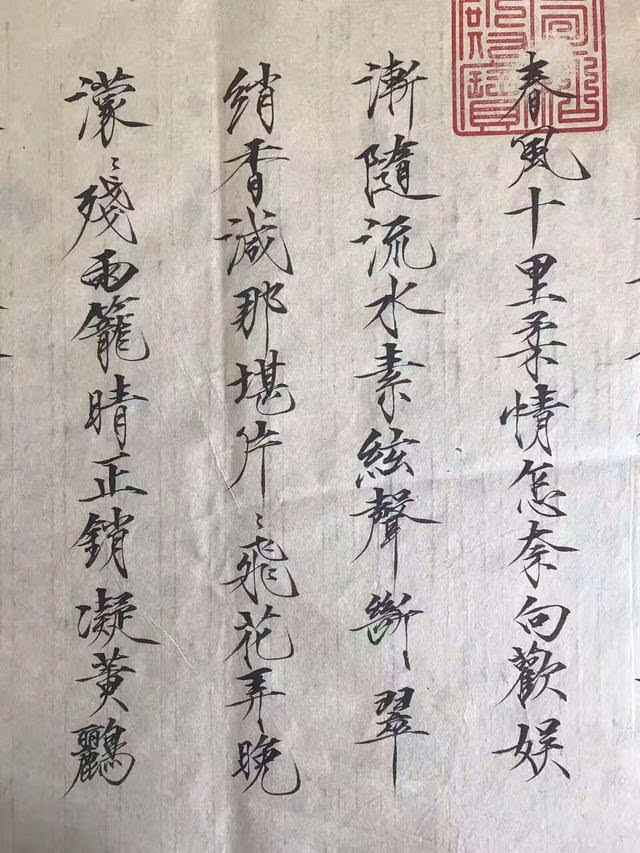 春風十里柔情怎奈向歡娱
漸隨流水素絃聲斷、翠
綃香減那堪片〻飛花弄、晚
濛〻殘雨籠晴正銷凝黄鸝